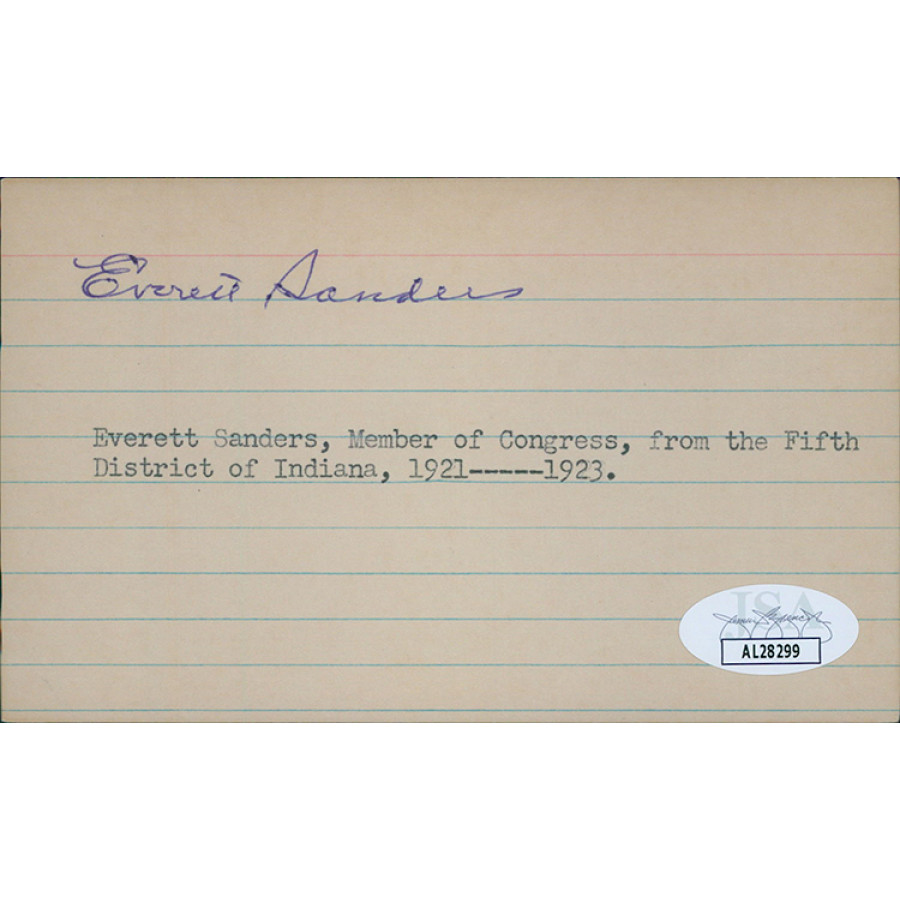 Everett Sanders
Everett Sanders, Member of Congress, from the Fifth
District of Indiana, 1921-----1923.
JSA
AL28299